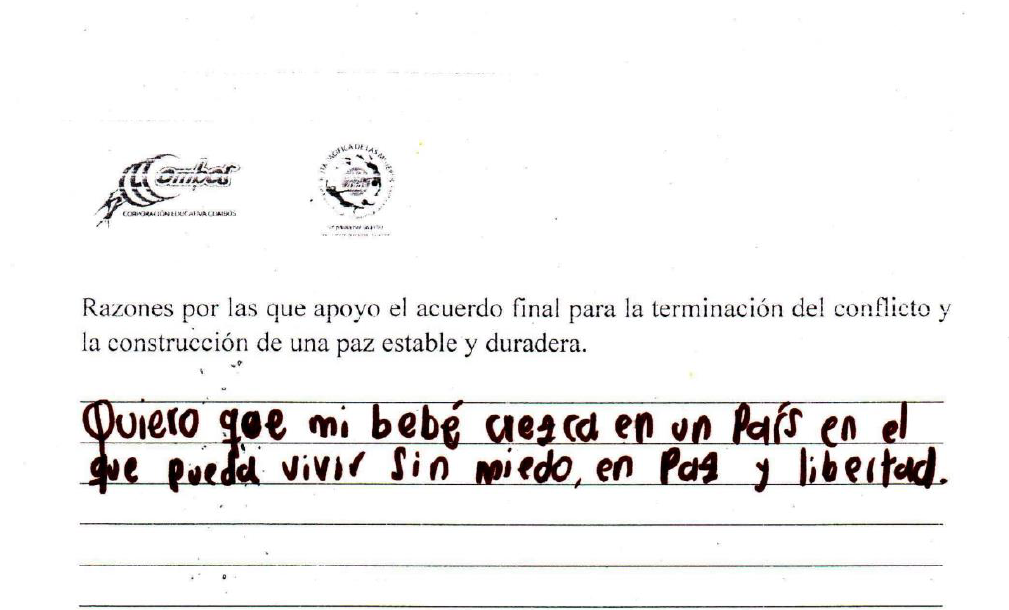 Combos
CORPORACIÓN EDUCATIVA COMBOS
PACÍFICA DE LAS
Razones por las que apoyo el acuerdo final para la terminación del conflicto y
la construcción de una paz estable y duradera.
Quiero que mi bebé crezca en un País en el
que pueda vivir sin miedo, en Paz y libertad.